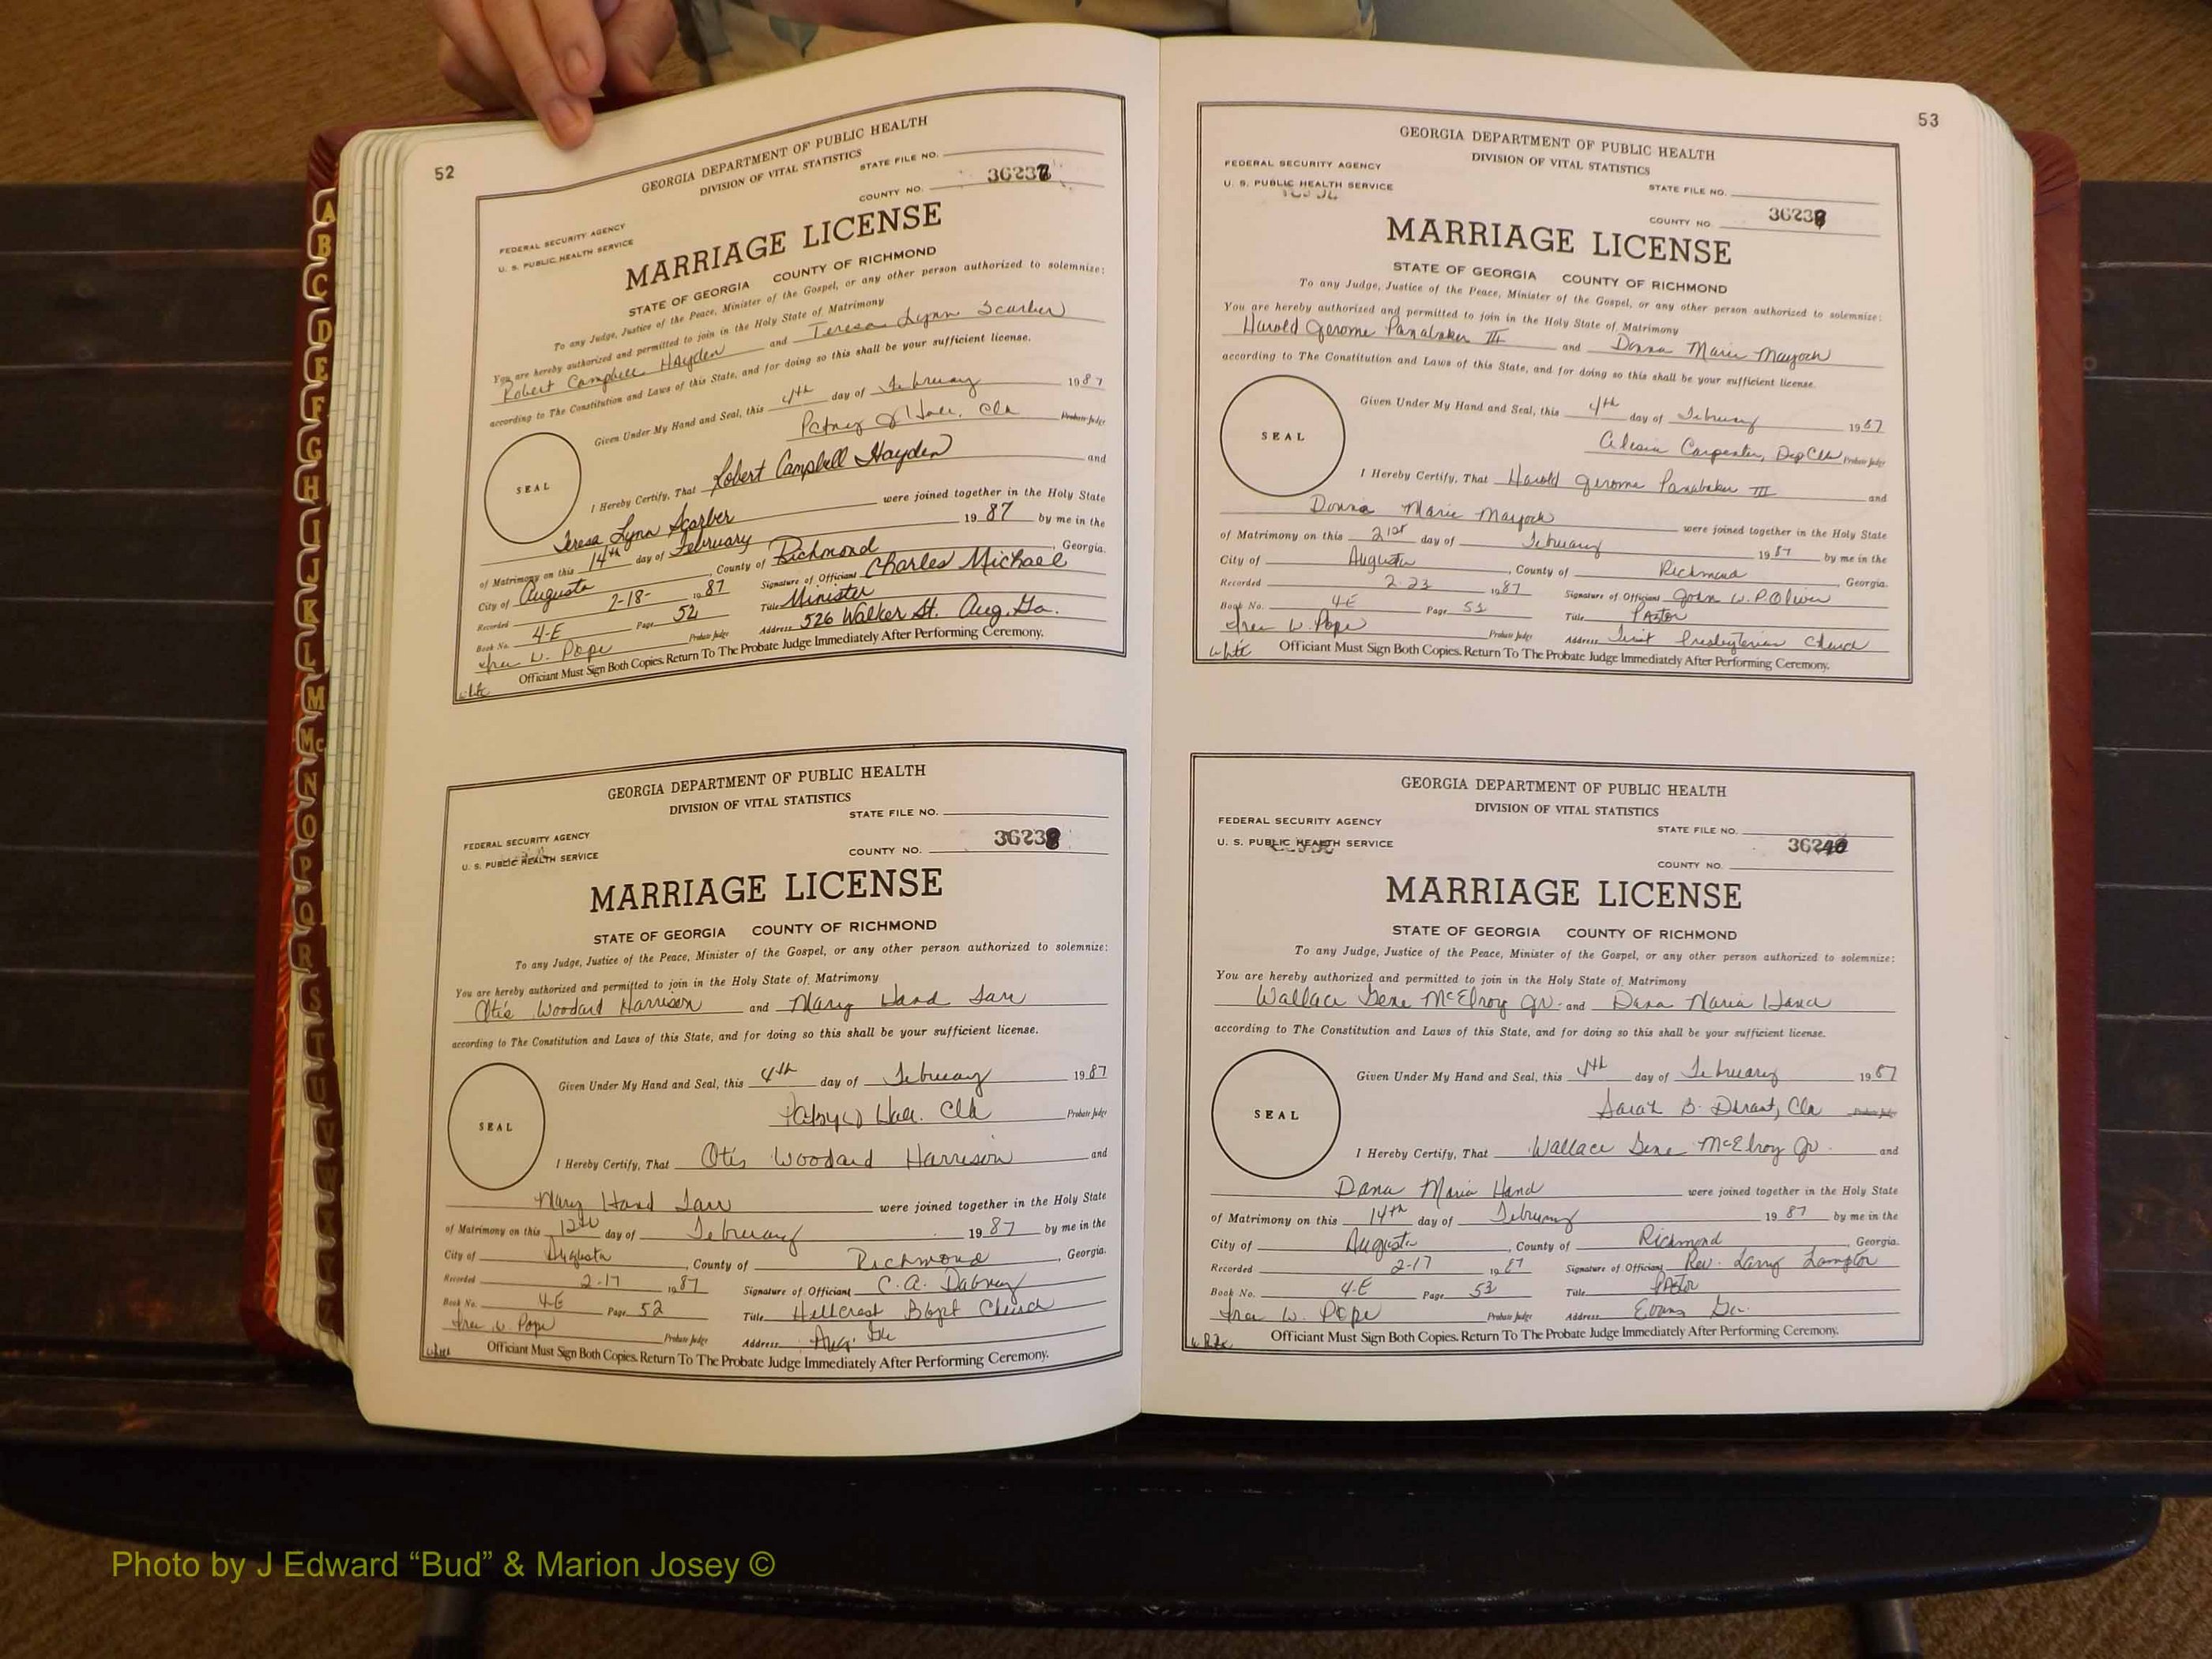 52
GEORGIA DEPARTMENT OF PUBLIC HEALTH
DIVISION OF VITAL STATISTICS
STATE FILE NO.
COUNTY NO. 36237
FEDERAL SECURITY AGENCY
U. S. PUBLIC HEALTH SERVICE
MARRIAGE LICENSE
STATE OF GEORGIA COUNTY OF RICHMOND
To any Judge, Justice of the Peace, Minister of the Gospel, or any other person authorized to solemnize:
You are hereby authorized and permitted to join in the Holy State of Matrimony
Robert Campbell Hayden and Teresa Lynn Scarber
according to The Constitution and Laws of this State, and for doing so this shall be your sufficient license.
Given Under My Hand and Seal, this 4th day of February 1987
Hall, Clk Probate Judge
SEAL
I Hereby Certify, That Robert Campbell Hayden and
Teresa Lynn Scarber were joined together in the Holy State
of Matrimony on this 14th day of February 1987 by me in the
City of Augusta, County of Richmond, Georgia.
Recorded 2-18- 1987 Signature of Officiant Charles Michael
Book No. 4-E Page 52 Title Minister
W. Pope Probate Judge Address 526 Walker St. Aug. Ga.
Officiant Must Sign Both Copies. Return To The Probate Judge Immediately After Performing Ceremony.
GEORGIA DEPARTMENT OF PUBLIC HEALTH
DIVISION OF VITAL STATISTICS
STATE FILE NO.
FEDERAL SECURITY AGENCY
U. S. PUBLIC HEALTH SERVICE
COUNTY NO. 36238
MARRIAGE LICENSE
STATE OF GEORGIA COUNTY OF RICHMOND
To any Judge, Justice of the Peace, Minister of the Gospel, or any other person authorized to solemnize:
You are hereby authorized and permitted to join in the Holy State of Matrimony
Otis Woodard Harrison and Mary Hand
according to The Constitution and Laws of this State, and for doing so this shall be your sufficient license.
Given Under My Hand and Seal, this 4th day of February 1987
Hall, Clk Probate Judge
SEAL
I Hereby Certify, That Otis Woodard Harrison and
Mary Hand were joined together in the Holy State
of Matrimony on this 12th day of February 1987 by me in the
City of Augusta, County of Richmond, Georgia.
Recorded 2-17 1987 Signature of Officiant C. A. Dabney
Book No. 4-E Page 52 Title Hillcrest Bapt Church
W. Pope Probate Judge Address Aug. Ga
Officiant Must Sign Both Copies. Return To The Probate Judge Immediately After Performing Ceremony.
53
GEORGIA DEPARTMENT OF PUBLIC HEALTH
DIVISION OF VITAL STATISTICS
FEDERAL SECURITY AGENCY
U. S. PUBLIC HEALTH SERVICE
STATE FILE NO.
COUNTY NO. 36239
MARRIAGE LICENSE
STATE OF GEORGIA COUNTY OF RICHMOND
To any Judge, Justice of the Peace, Minister of the Gospel, or any other person authorized to solemnize:
You are hereby authorized and permitted to join in the Holy State of Matrimony
Harold Jerome Panabaker III and Donna Marie Mayock
according to The Constitution and Laws of this State, and for doing so this shall be your sufficient license.
Given Under My Hand and Seal, this 4th day of February 1987
Carpenter, Dep Clk Probate Judge
SEAL
I Hereby Certify, That Harold Jerome Panabaker III and
Donna Marie Mayock were joined together in the Holy State
of Matrimony on this 21st day of February 1987 by me in the
City of Augusta, County of Richmond, Georgia.
Recorded 2-23 1987 Signature of Officiant John W. P. Oliver
Book No. 4-E Page 53 Title Pastor
W. Pope Probate Judge Address First Presbyterian Church
white Officiant Must Sign Both Copies. Return To The Probate Judge Immediately After Performing Ceremony.
GEORGIA DEPARTMENT OF PUBLIC HEALTH
DIVISION OF VITAL STATISTICS
FEDERAL SECURITY AGENCY
U. S. PUBLIC HEALTH SERVICE
STATE FILE NO.
36240
COUNTY NO.
MARRIAGE LICENSE
STATE OF GEORGIA COUNTY OF RICHMOND
To any Judge, Justice of the Peace, Minister of the Gospel, or any other person authorized to solemnize:
You are hereby authorized and permitted to join in the Holy State of Matrimony
Wallace Gene McElroy Jr. and Dana Maria Hand
according to The Constitution and Laws of this State, and for doing so this shall be your sufficient license.
Given Under My Hand and Seal, this 4th day of February 1987
Sarah B. Clk Probate Judge
SEAL
I Hereby Certify, That Wallace Gene McElroy Jr. and
Dana Maria Hand were joined together in the Holy State
of Matrimony on this 14th day of February 1987 by me in the
City of Augusta, County of Richmond, Georgia.
Recorded 2-17 1987 Signature of Officiant Rev. Larry
Book No. 4-E Page 53 Title Pastor
W. Pope Probate Judge Address Evans Ga.
white Officiant Must Sign Both Copies. Return To The Probate Judge Immediately After Performing Ceremony.
A
B
C
D
E
F
G
H
I
J
K
L
M
Mc
N
O
P
Q
R
S
T
U
Photo by J Edward “Bud” & Marion Josey ©